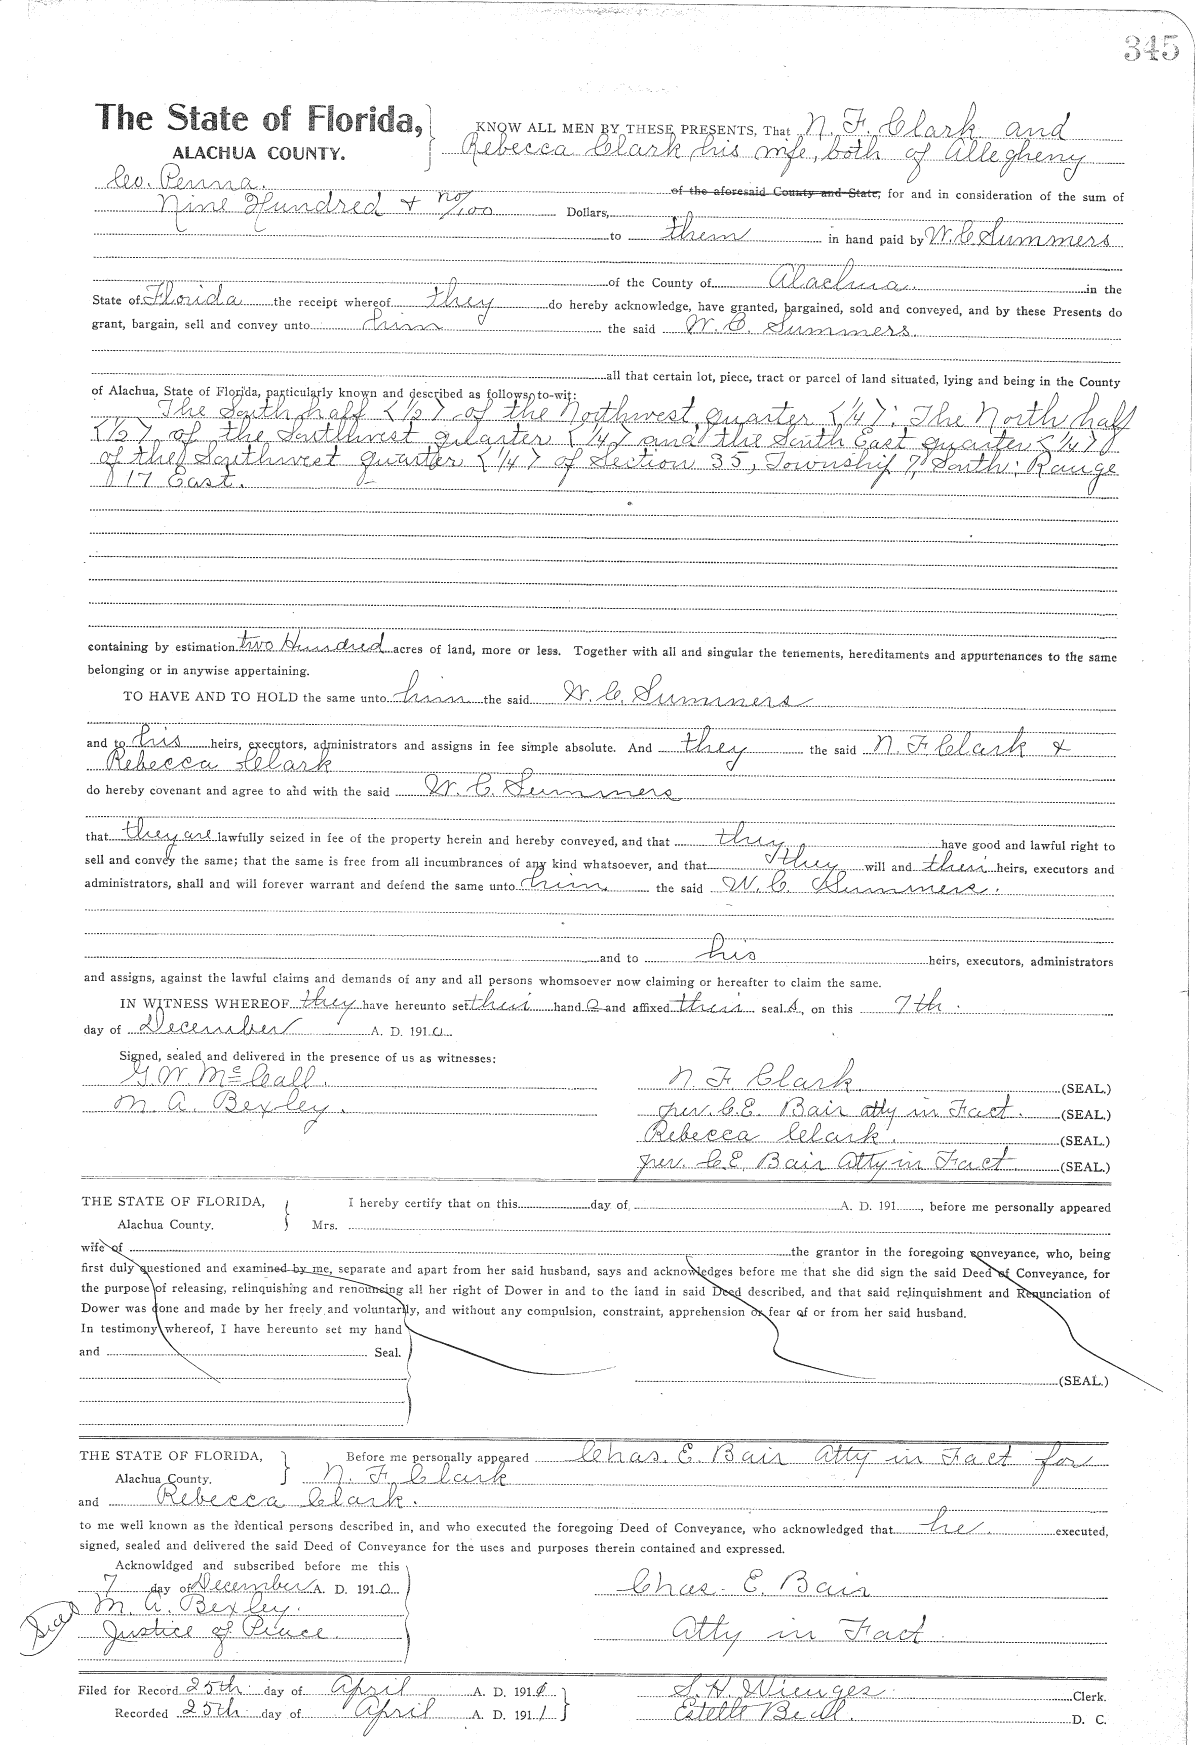 345
The State of Florida,
ALACHUA COUNTY.
KNOW ALL MEN BY THESE PRESENTS, That N. F. Clark and
Rebecca Clark his wife, both of Allegheny
Co. Penna. of the aforesaid County and State, for and in consideration of the sum of
Nine Hundred & no/100 Dollars,
to them in hand paid by W. C Summers
of the County of Alachua in the
State of Florida the receipt whereof they do hereby acknowledge, have granted, bargained, sold and conveyed, and by these Presents do
grant, bargain, sell and convey unto him the said W. C. Summers.
all that certain lot, piece, tract or parcel of land situated, lying and being in the County
of Alachua, State of Florida, particularly known and described as follows, to-wit:
The South half <1/2> of the Northwest quarter <1/4>: The North half
<1/2> of the Southwest quarter <1/4> and the South East quarter <1/4>
of the Southwest quarter <1/4> of Section 35, Township 7, South; Range
17 East.
containing by estimation two Hundred acres of land, more or less. Together with all and singular the tenements, hereditaments and appurtenances to the same
belonging or in anywise appertaining.
TO HAVE AND TO HOLD the same unto him the said W. C. Summers
and to his heirs, executors, administrators and assigns in fee simple absolute. And they the said N. F Clark &
Rebecca Clark
do hereby covenant and agree to and with the said W. C. Summers
that they are lawfully seized in fee of the property herein and hereby conveyed, and that they have good and lawful right to
sell and convey the same; that the same is free from all incumbrances of any kind whatsoever, and that they will and their heirs, executors and
administrators, shall and will forever warrant and defend the same unto him the said W. C. Summers.
and to his heirs, executors, administrators
and assigns, against the lawful claims and demands of any and all persons whomsoever now claiming or hereafter to claim the same.
IN WITNESS WHEREOF they have hereunto set their hand s and affixed their seal s, on this 7th.
day of December A. D. 1910
Signed, sealed and delivered in the presence of us as witnesses:
G. W. McCall. N. F. Clark (SEAL.)
M. A. Bexley. per. C. E. Bair atty in Fact. (SEAL.)
Rebecca Clark. (SEAL.)
per. C. E. Bair Atty in Fact. (SEAL.)
THE STATE OF FLORIDA, I hereby certify that on this day of A. D. 191 , before me personally appeared
Alachua County. Mrs.
wife of the grantor in the foregoing conveyance, who, being
first duly questioned and examined by me, separate and apart from her said husband, says and acknowledges before me that she did sign the said Deed of Conveyance, for
the purpose of releasing, relinquishing and renouncing all her right of Dower in and to the land in said Deed described, and that said relinquishment and Renunciation of
Dower was done and made by her freely and voluntarily, and without any compulsion, constraint, apprehension or fear of or from her said husband.
In testimony whereof, I have hereunto set my hand
and Seal.
(SEAL.)
THE STATE OF FLORIDA, Before me personally appeared Chas. E. Bair Atty in Fact for
Alachua County. N. F. Clark
and Rebecca Clark.
to me well known as the identical persons described in, and who executed the foregoing Deed of Conveyance, who acknowledged that he executed,
signed, sealed and delivered the said Deed of Conveyance for the uses and purposes therein contained and expressed.
Acknowldged and subscribed before me this
7 day of December A. D. 1910 Chas. E. Bair
M. A. Bexley.
Seal Justice of Peace. Atty in Fact
Filed for Record 25th day of April A. D. 1911 S. H. Wienges Clerk.
Recorded 25th day of April A. D. 1911 Estelle Beall. D. C.